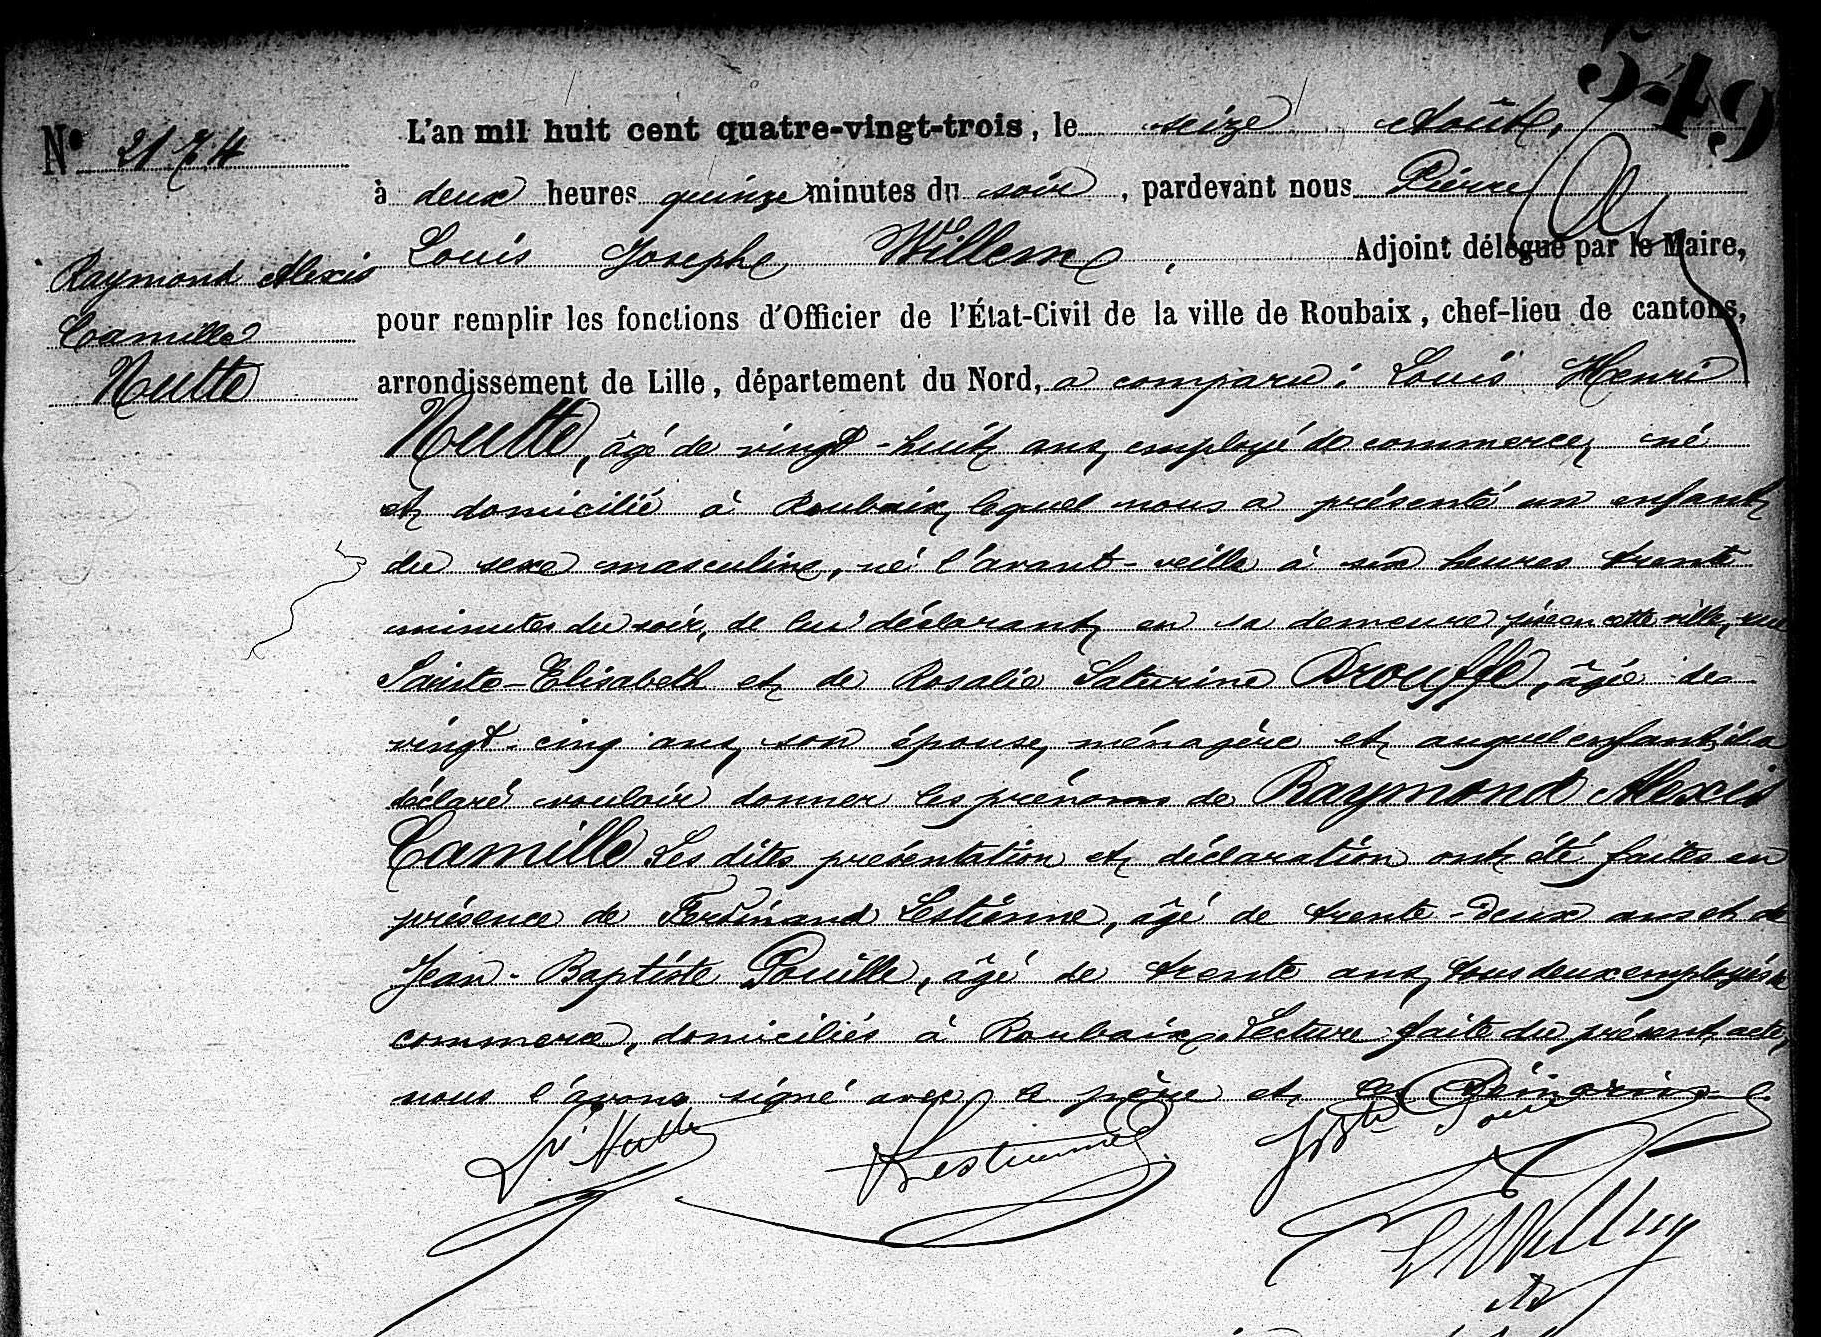 549
N° 2174
Raymond Alexis
Camille
Nutte
L'an mil huit cent quatre-vingt-trois, le seize Août,
à deux heures quinze minutes du soir, pardevant nous Pierre
Louis Joseph Willem, Adjoint délégué par le Maire,
pour remplir les fonctions d'Officier de l'État-Civil de la ville de Roubaix, chef-lieu de cantons,
arrondissement de Lille, département du Nord, a comparu : Louis Henri
Nutte, âgé de vingt-huit ans, employé de commerce, né
et domicilié à Roubaix, lequel nous a présenté un enfant
du sexe masculin, né l'avant-veille à six heures trente
minutes du soir, de lui déclarant, en sa demeure sise en cette ville, rue
Sainte-Elisabeth et de Rosalie Saturine Drouffe, âgée de
vingt-cinq ans, son épouse, ménagère et auquel enfant il a
déclaré vouloir donner les prénoms de Raymond Alexis
Camille Les dites présentation et déclaration ont été faites en
présence de Ferdinand Lestienne, âgé de trente-deux ans et de
Jean-Baptiste Pouille, âgé de trente ans, tous deux employés de
commerce, domiciliés à Roubaix. Lecture faite du présent acte,
nous l'avons signé avec le père et les témoins
Ls Nutte Lestienne Jbte Pouille